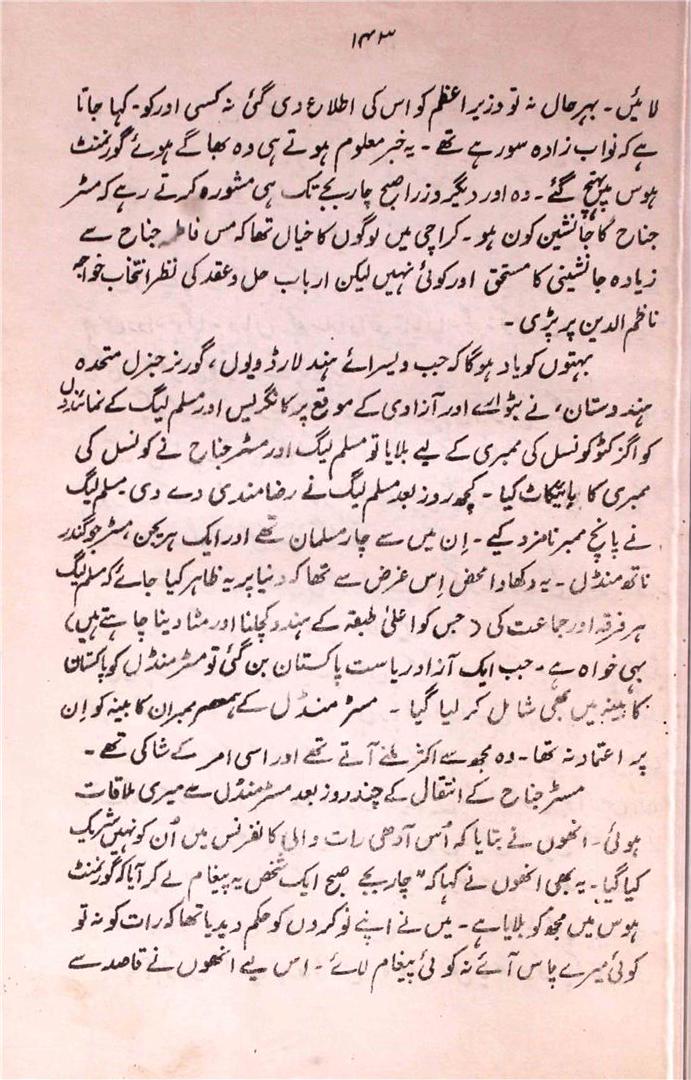 ۱۴۳
لائیں۔ بہرحال نہ تو وزیر اعظم کو اس کی اطلاع دی گئی نہ کسی اور کو۔ کہا جاتا
ہے کہ نواب زادہ سو رہے تھے۔ یہ خبر معلوم ہوتے ہی وہ بھاگے ہوئے گورنمنٹ
ہوس پہنچ گئے۔ وہ اور دیگر وزرا صبح چار بجے تک ہی مشورہ کرتے رہے کہ مسٹر
جناح کا جانشین کون ہو۔ کراچی میں لوگوں کا خیال تھا کہ مس فاطمہ جناح سے
زیادہ جانشینی کا مستحق اور کوئی نہیں لیکن ارباب حل و عقد کی نظر انتخاب خواجہ
ناظم الدین پر پڑی۔
بہتوں کو یاد ہوگا کہ جب ویسرائے ہند لارڈ ویول، گورنر جنرل متحدہ
ہندوستان، نے بٹوارے اور آزادی کے موقع پر کانگریس اور مسلم لیگ کے نمائندوں
کو اگزکٹو کونسل کی ممبری کے لیے بلایا تو مسلم لیگ اور مسٹر جناح نے کونسل کی
ممبری کا بائیکاٹ کیا۔ کچھ روز بعد مسلم لیگ نے رضامندی دے دی۔ مسلم لیگ
نے پانچ ممبر نامزد کیے۔ اِن میں سے چار مسلمان تھے اور ایک ہریجن، مسٹر جوگندر
ناتھ منڈل۔ یہ دکھاوا محض اِس غرض سے تھا کہ دنیا پر یہ ظاہر کیا جائے کہ مسلم لیگ
ہر فرقہ اور جماعت کی (جس کو اعلیٰ طبقہ کے ہندو کچلنا اور مٹا دینا چاہتے ہیں)
بہی خواہ ہے۔ جب ایک آزاد ریاست پاکستان بن گئی تو مسٹر منڈل کو پاکستان
کابینہ میں بھی شامل کر لیا گیا۔ مسٹر منڈل کے ہمعصر ممبران کابینہ کو اِن
پر اعتماد نہ تھا۔ وہ مجھ سے اکثر ملنے آتے تھے اور اسی امر کے شاکی تھے۔
مسٹر جناح کے انتقال کے چند روز بعد مسٹر منڈل سے میری ملاقات
ہوئی۔ انھوں نے بتایا کہ اُس آدھی رات والی کانفرنس میں اُن کو نہیں شریک
کیا گیا۔ یہ بھی انھوں نے کہا کہ "چار بجے صبح ایک شخص یہ پیغام لے کر آیا کہ گورنمنٹ
ہوس میں مجھ کو بلایا ہے۔ میں نے اپنے نوکروں کو حکم دیدیا تھا کہ رات کو نہ تو
کوئی میرے پاس آئے نہ کوئی پیغام لائے۔ اس لیے انھوں نے قاصد سے